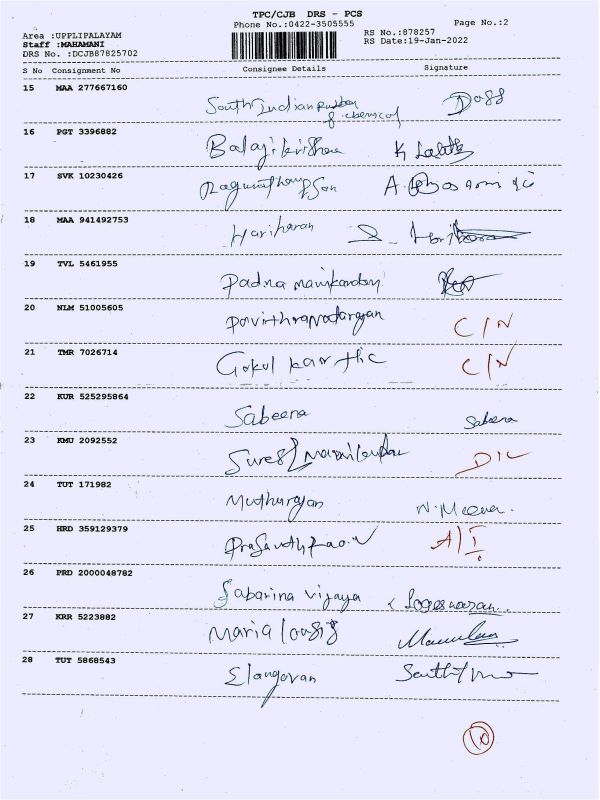 TPC/CJB DRS - PCS
Phone No.:0422-3505555 Page No.:2
Area :UPPLIPALAYAM RS No.:878257
Staff :MAHAMANI RS Date:19-Jan-2022
DRS No. :DCJB87825702
S No Consignment No Consignee Details Signature
15 MAA 277667160
South Indian
& chemical Doss
16 PGT 3396882
Balaji krishna K
17 SVK 10230426
Son A.
18 MAA 941492753
Hariharan
19 TVL 5461955
Padma manikandan
20 NLM 51005605
C/N
21 TMR 7026714
Gokul karthic C/N
22 KUR 525295864
Sabeena Sabeena
23 KMU 2092552
Suresh
24 TUT 171982
Muthurajan N. Meena.
25 HRD 359129379
A/I
26 PRD 2000048782
Sabarina vijaya Logeswaran.
27 KRR 5223882
Maria
28 TUT 5868543
Elangovan
10